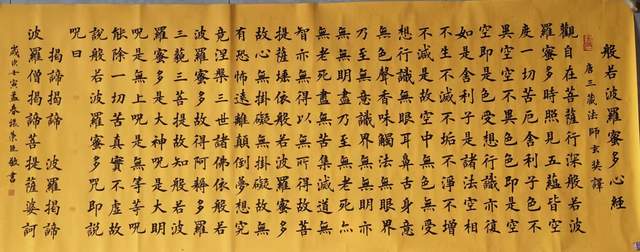 般若波羅蜜多心經
唐三藏法師玄奘譯
觀自在菩薩行深般若波
羅蜜多時照見五蘊皆空
度一切苦厄舍利子色不
異空空不異色色即是空
空即是色受想行識亦復
如是舍利子是諸法空相
不生不滅不垢不淨不增
不減是故空中無色無受
想行識無眼耳鼻舌身意
無色聲香味觸法無眼界
乃至無意識界無無明亦
無無明盡乃至無老死亦
無老死盡無苦集滅道無
智亦無得以無所得故菩
提薩埵依般若波羅蜜多
故心無掛礙無掛礙故無
有恐怖遠離顛倒夢想究
竟涅槃三世諸佛依般若
波羅蜜多故得阿耨多羅
三藐三菩提故知般若波
羅蜜多是大神呪是大明
呪是無上呪是無等等呪
能除一切苦真實不虛故
說般若波羅蜜多咒即說
呪曰
揭諦揭諦 波羅揭諦
波羅僧揭諦菩提薩婆訶
歲次壬寅孟春張 敬書